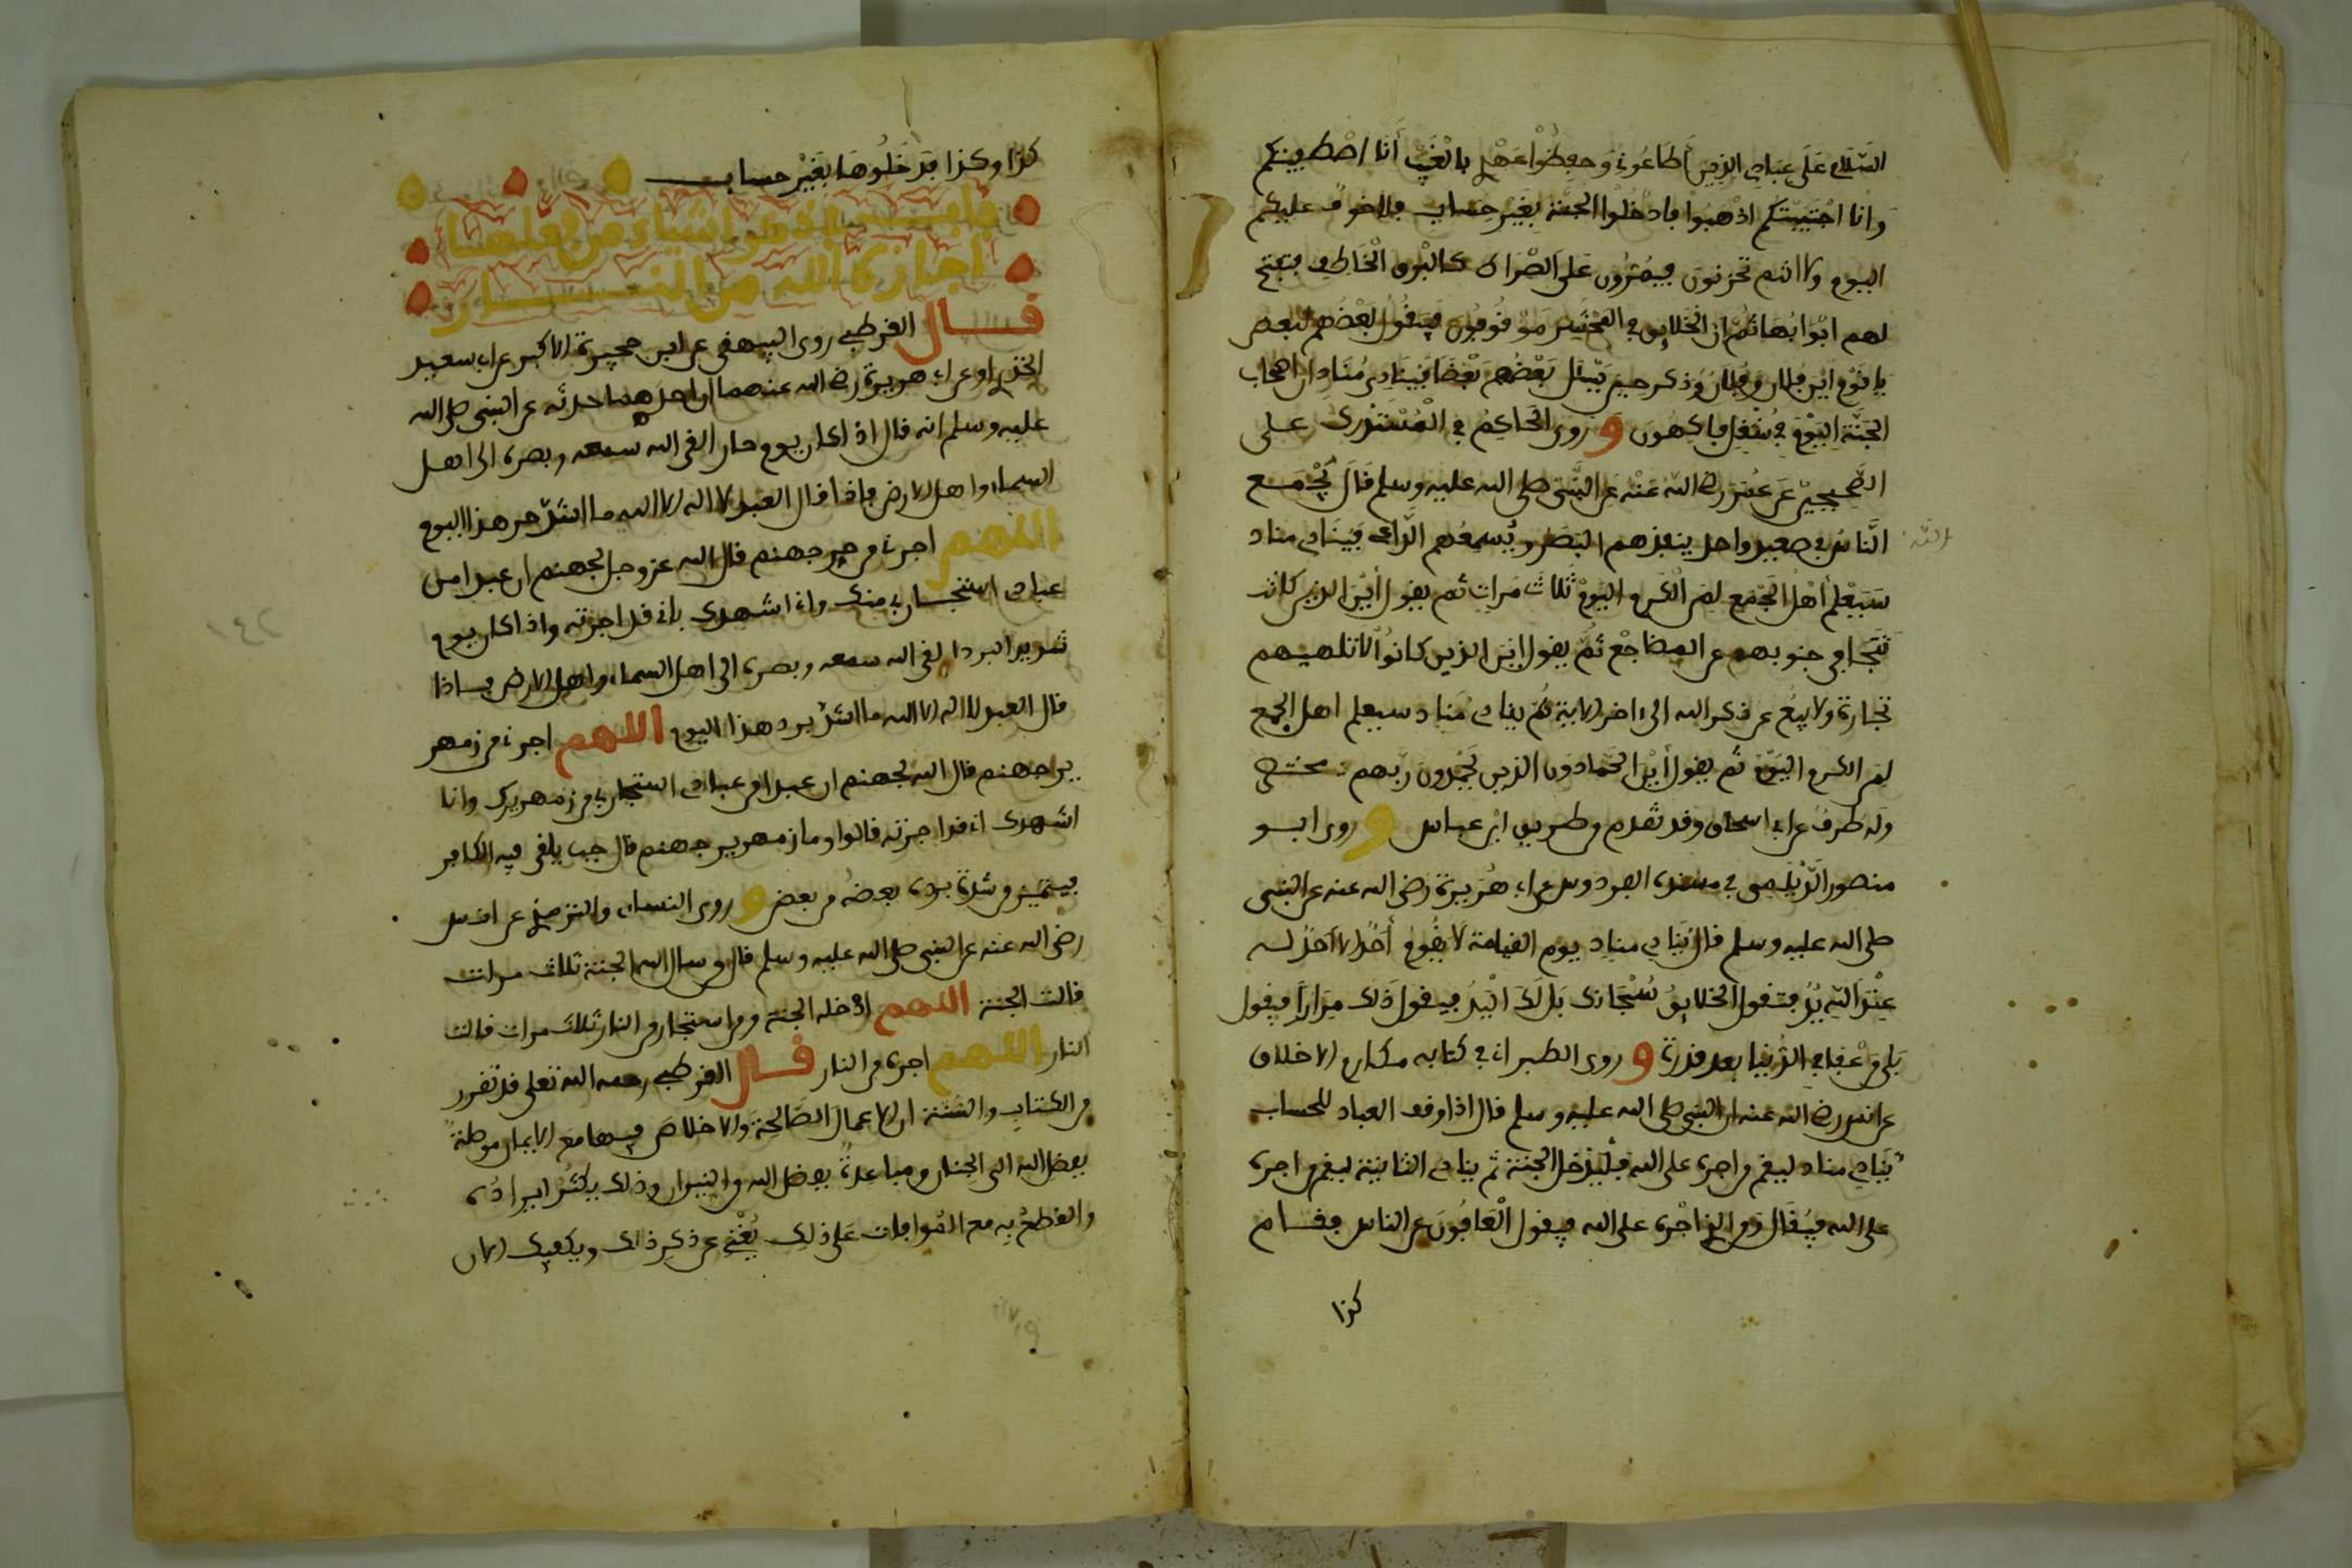 السلام على عبادي الذين أطاعوني وحفظوا عهدي بالغيب أنا اصطفيتكم
وانا اجتبيتكم اذهبوا فادخلوا الجنة بغير حساب فلا خوف عليكم
اليوم ولا انتم تحزنون فيمرون على الصراط كالبرق الخاطف فتفتح
لهم ابوابها ثم ان الخلايق في المحشر موقوفون فيقول بعضهم لبعض
يا قوم اين فلان وفلان وذكر حين يسئل بعضهم بعضا فينادي مناد ان اصحاب
الجنة اليوم في شغل فاكهون و روى الحاكم في المستدرك على
الصحيحين عن عقبة رضي الله عنه عن النبي صلى الله عليه وسلم قال يجمع
الناس في صعيد واحد ينفذهم البصر ويسمعهم الداعي فينادي مناد
سيعلم أهل الجمع لمن الكرم اليوم ثلاث مرات ثم يقول أين الذين كانت
تتجافى جنوبهم عن المضاجع ثم يقول اين الذين كانوا لا تلهيهم
تجارة ولا بيع عن ذكر الله الى اخر الاية ثم ينادي مناد سيعلم اهل الجمع
لمن الكرم اليوم ثم يقول أين الحمادون الذين يحمدون ربهم
وله طرق عن ابي اسحاق وقد تقدم من طريق ابن عباس و روى ابو
منصور الديلمي في مسند الفردوس عن ابي هريرة رضي الله عنه عن النبي
صلى الله عليه وسلم قال ينادي مناد يوم القيامة لا يقوم أحد الا أحد له
عند الله يد فتقول الخلايق سبحانك بل لك اليد فيقول ذلك مرارا فيقول
بلى من عفا في الدنيا بعد قدرة و روى الطبراني في كتابه مكارم الاخلاق
عن انس رضي الله عنه ان النبي صلى الله عليه وسلم قال اذا وقف العباد للحساب
ينادي مناد ليقم من اجره على الله فليدخل الجنة ثم ينادي الثانية ليقم من اجره
على الله فيقال ومن الذي اجره على الله فيقول العافون عن الناس فقام
كذا
كذا وكذا فدخلوها بغير حساب
باب ذكر اشياء من فعلها
اجاره الله من النار
قال القرطبي روى البيهقي عن ابن حجيرة الاكبر عن ابي سعيد
الخدري او عن ابي هريرة رضي الله عنهما ان احدهما حدثه عن النبي صلى الله
عليه وسلم انه قال اذا كان يوم حار القى الله سمعه وبصره الى اهل
السماء واهل الارض فاذا قال العبد لا اله الا الله ما اشد حر هذا اليوم
اللهم اجرني من حر جهنم قال الله عز وجل لجهنم ان عبدا من
عبادي استجار بي منك واني اشهدك باني قد اجرته واذا كان يوم
شديد البرد القى الله سمعه وبصره الى اهل السماء واهل الارض فاذا
قال العبد لا اله الا الله ما اشد برد هذا اليوم اللهم اجرني من زمهر
ير جهنم قال الله لجهنم ان عبدا من عبادي استجار بي من زمهريرك وانا
اشهدك اني قد اجرته قالوا وما زمهرير جهنم قال جب يلقى فيه الكافر
فيتميز من شدة برده بعضه من بعض و روى النسائي والترمذي عن انس
رضي الله عنه عن النبي صلى الله عليه وسلم قال من سال الله الجنة ثلاث مرات
قالت الجنة اللهم ادخله الجنة ومن استجار من النار ثلاث مرات قالت
النار اللهم اجره من النار قال القرطبي رحمه الله تعلى قد تقرر
من الكتاب والسنة ان الاعمال الصالحة والاخلاص فيها مع الايمان موصلة
بفضل الله الى الجنان ومباعدة بفضل الله من النيران وذلك يكثر ايراده
والقطع به مع الموافات على ذلك يغني عن ذكر ذلك ويكفيك الان